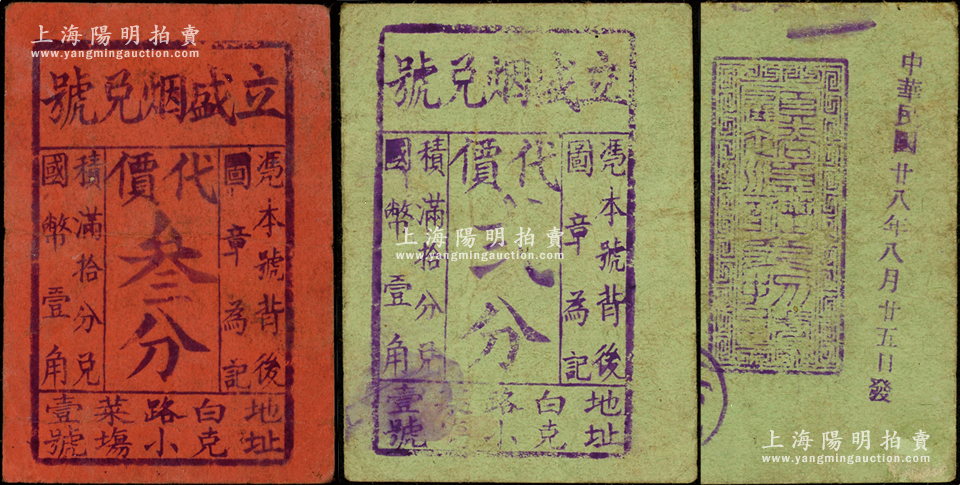 上海陽明拍賣
www.yangmingauction.com
立盛烟兑號
憑本號背後
圖章為記
代價
叁分
積滿拾分兑
國幣壹角
地址
白克路小菜塲壹號
上海陽明拍賣
www.yangmingauction.com
立盛烟兑號
憑本號背後
圖章為記
代價
弍分
積滿拾分兑
國幣壹角
地址
白克路小菜塲壹號
中華民國廿八年八月廿五日發
上海陽明拍賣
www.yangmingauction.com